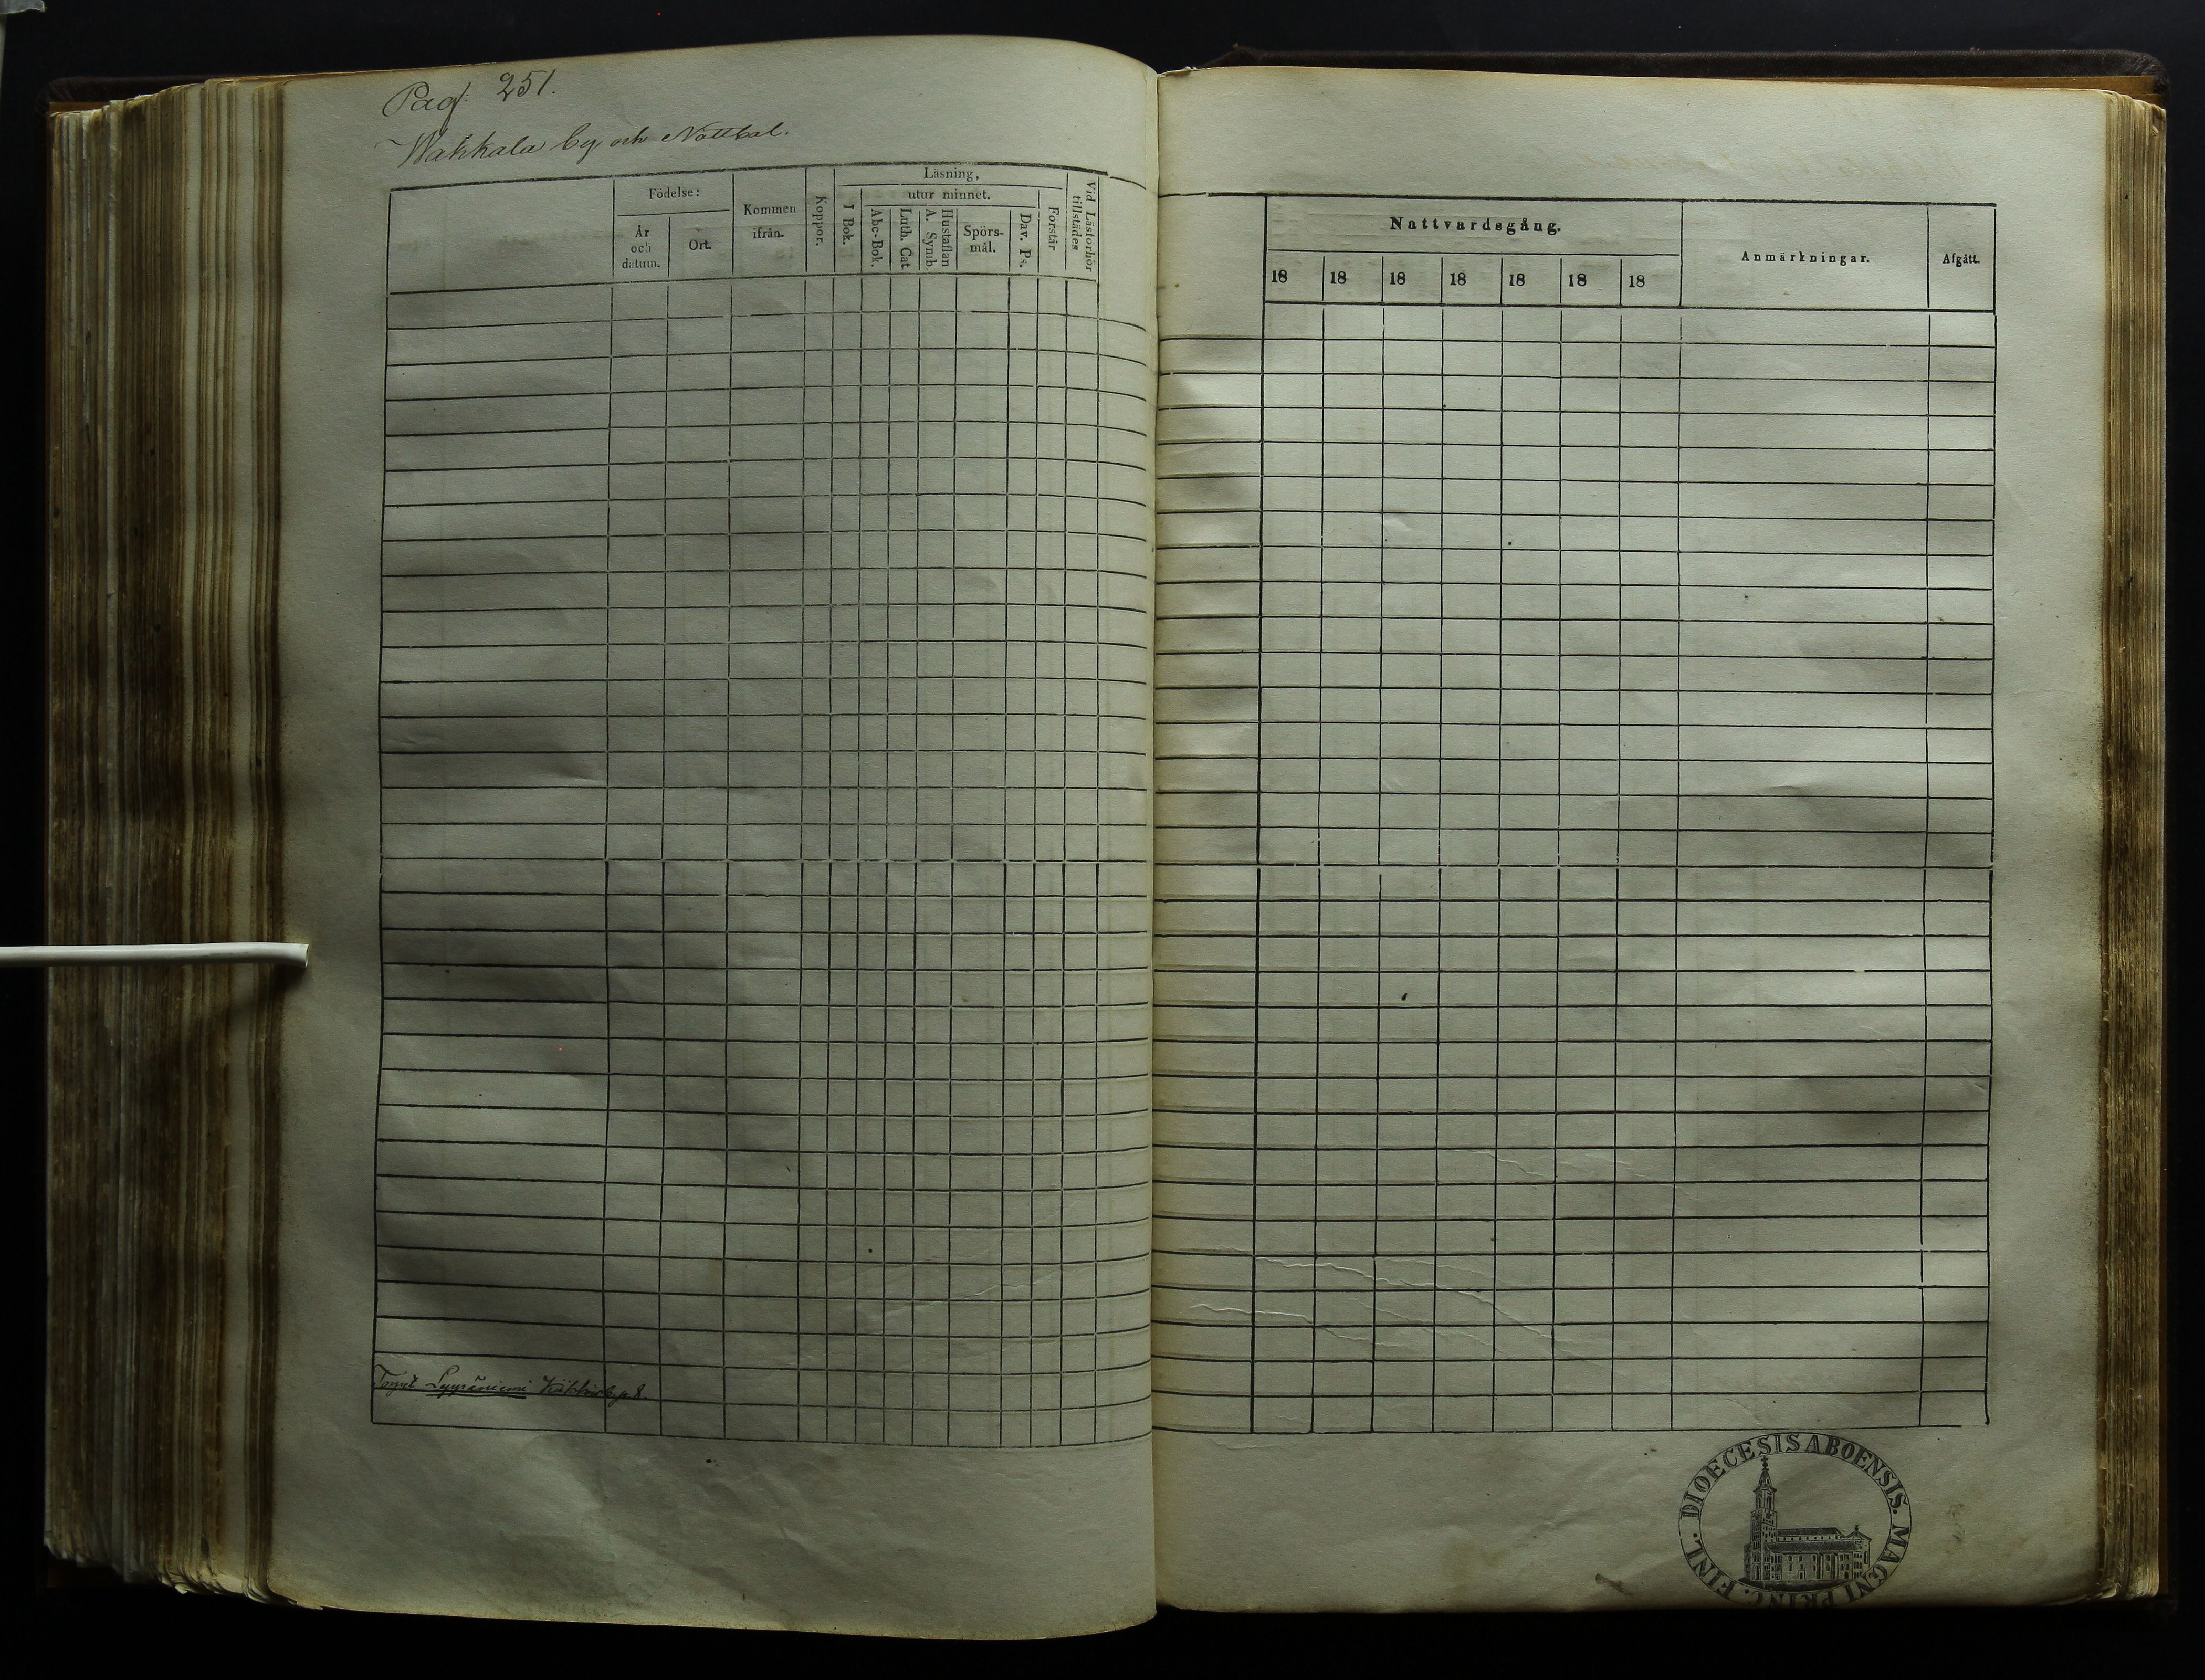 Pag: 251.
Wakkala by och Nottbal.
Födelse:
År och datum.
Ort.
Kommen ifrån.
Koppor.
Läsning,
utur minnet.
I Bok.
Abc-Bok.
Luth. Cat.
Hustaflan A. Symb.
Spörs-mål.
Dav. Ps.
Förstår
Vid Läsförhör tillstädes
Torpet Lyyräniemi
Nattvardsgång.
Anmärkningar.
Afgått.
18 18 18 18 18 18 18
DIOECESIS ABOENSIS. MAGNI PRINC. FINL.